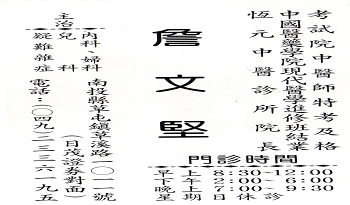 考試院中醫師特考及格
中國醫藥學院現代醫學進修班結業
恆元中醫診所院長
詹文堅
主治
內科、婦科
兒科
疑難雜症
南投縣草屯鎮草溪路一〇一號
(日茂證券對面)
電話:〇四九二三三六一九五
門診時間
早上 8:30-12:00
下午 2:00~6:00
晚上 7:00~9:30
星期日休診